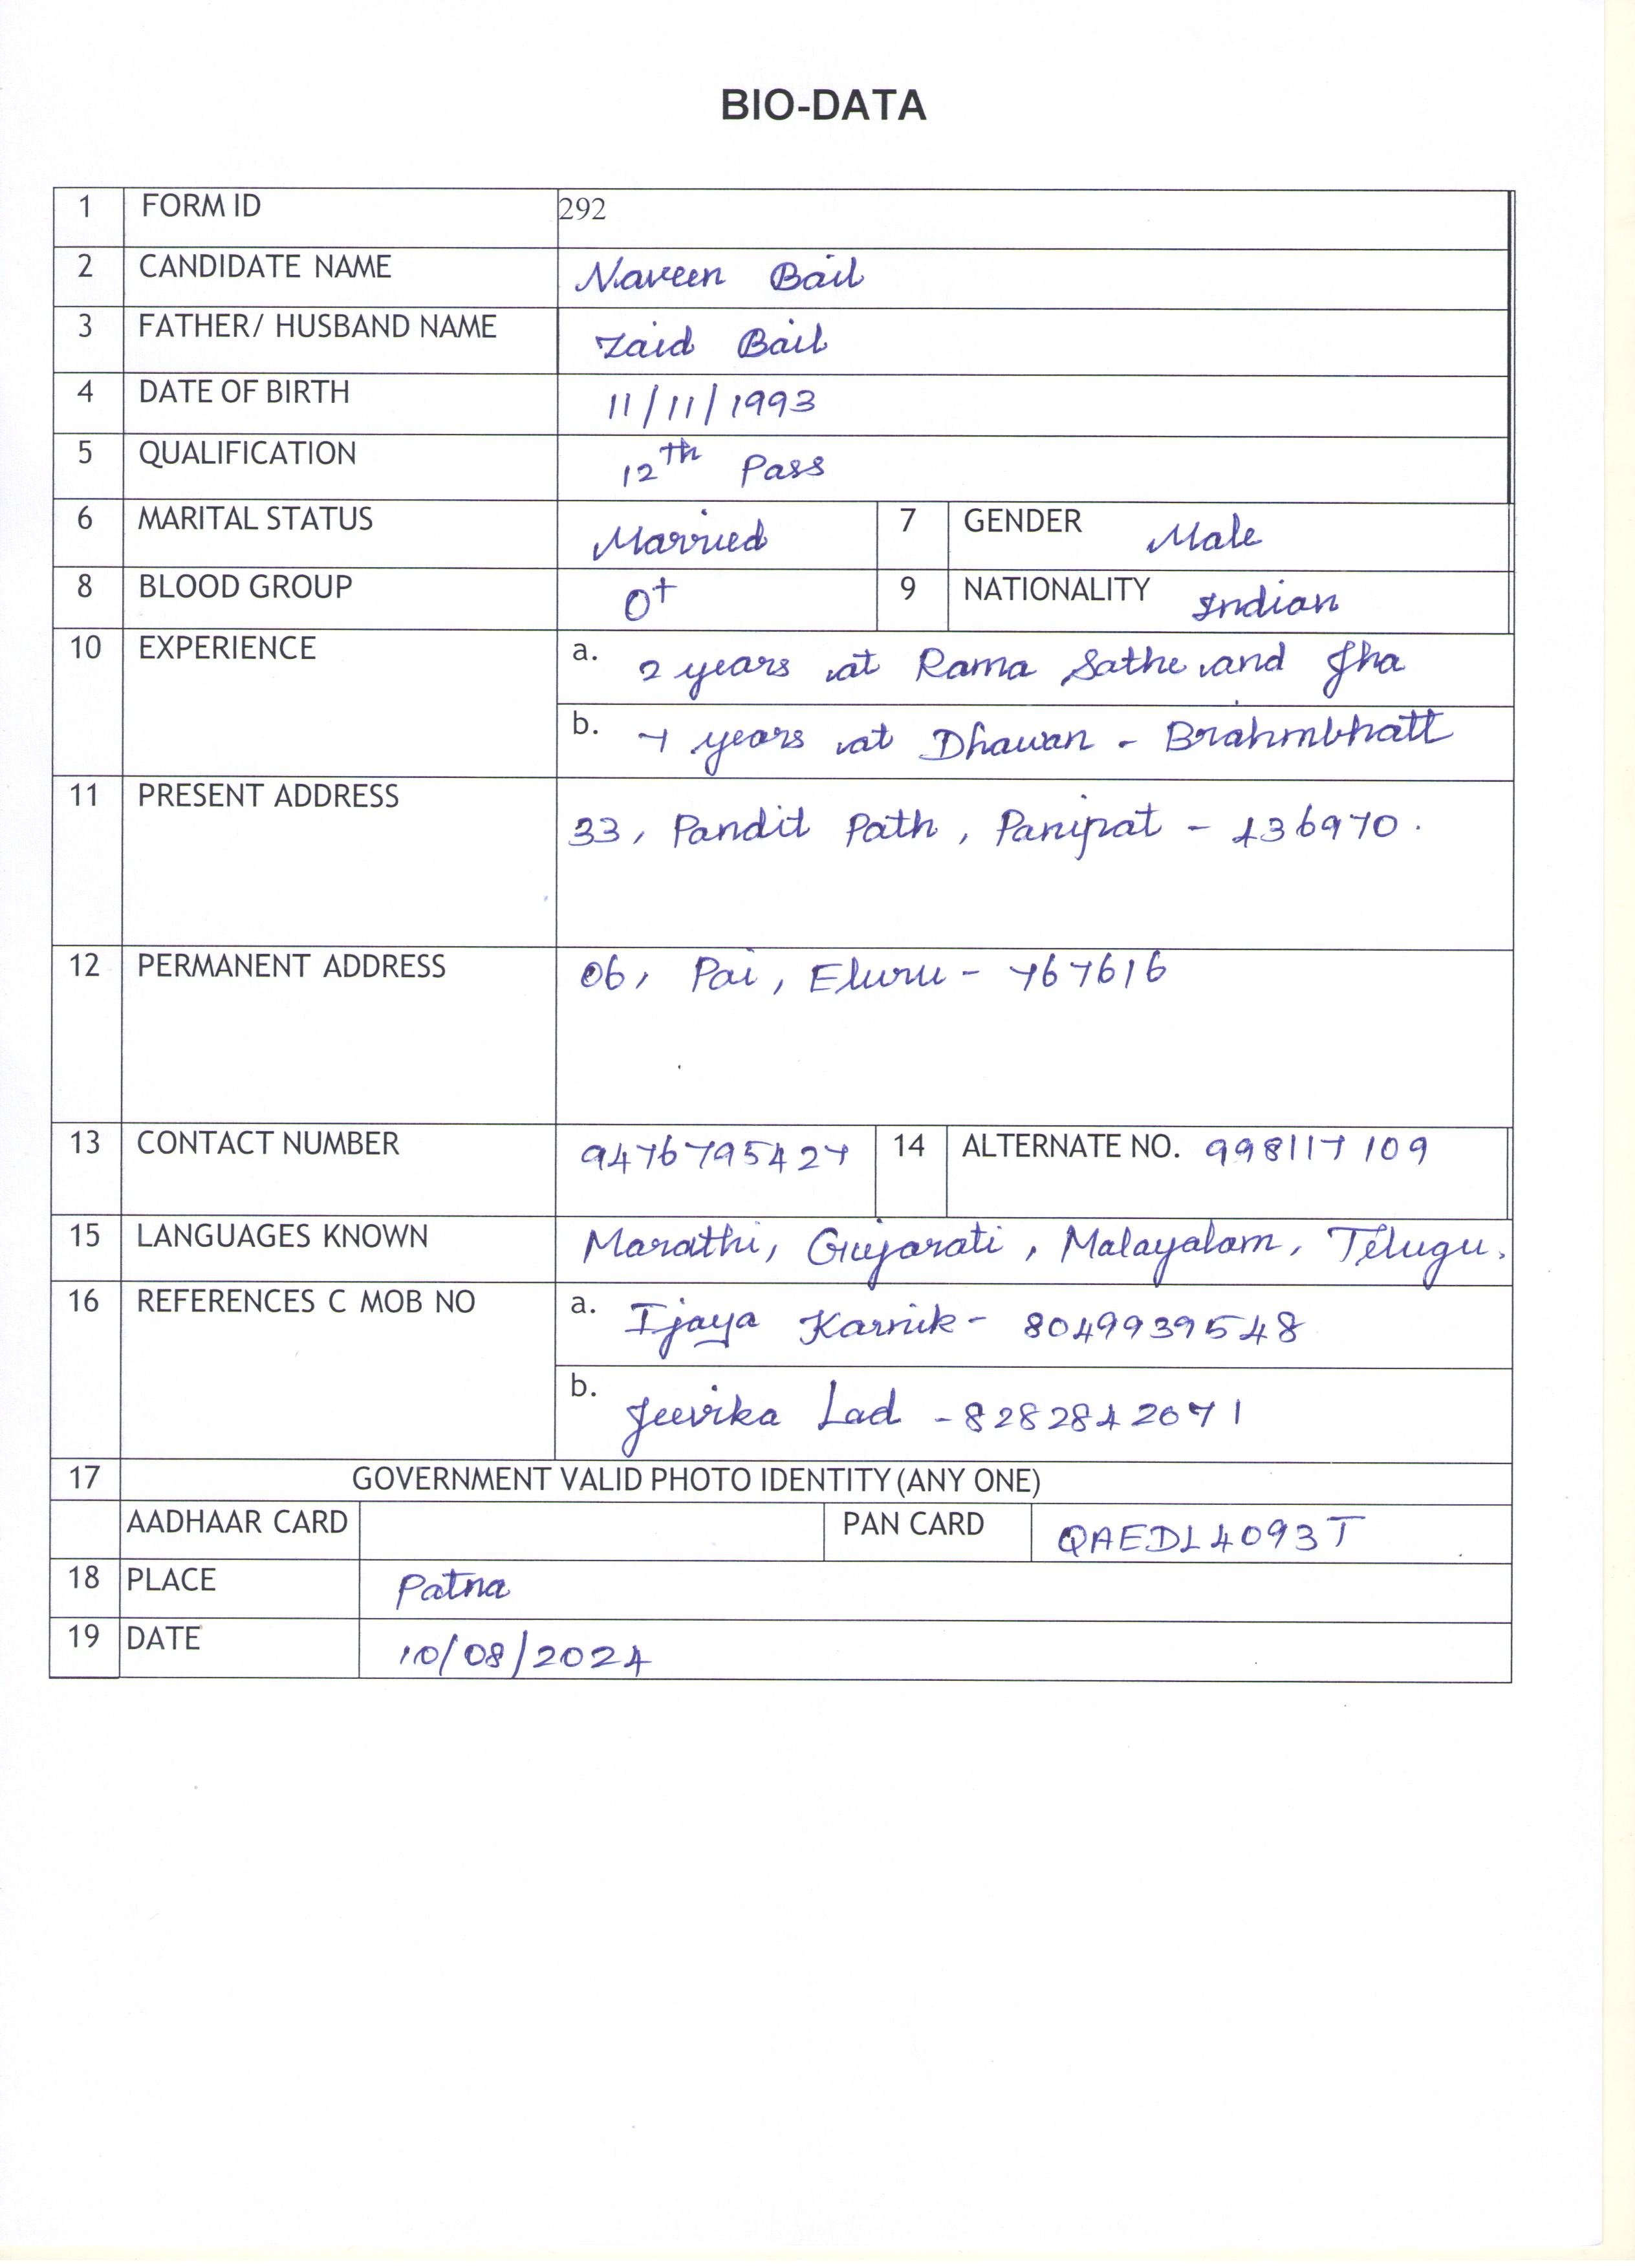 BIO-DATA
1 FORM ID 292
2 CANDIDATE NAME Naveen Bail
3 FATHER/ HUSBAND NAME Zaid Bail
4 DATE OF BIRTH 11/11/1993
5 QUALIFICATION 12th Pass
6 MARITAL STATUS Married 7 GENDER Male
8 BLOOD GROUP O+ 9 NATIONALITY Indian
10 EXPERIENCE a. 2 years at Rama Sathe and Jha
b. 7 years at Dhawan - Brahmbhatt
11 PRESENT ADDRESS 33, Pandit Path, Panipat - 436970.
12 PERMANENT ADDRESS 06, Pai, Eluru - 767616
13 CONTACT NUMBER 9476795427 14 ALTERNATE NO. 998117109
15 LANGUAGES KNOWN Marathi, Gujarati, Malayalam, Telugu.
16 REFERENCES C MOB NO a. Ijaya Karnik - 8049939548
b. Jeevika Lad - 8282842071
17 GOVERNMENT VALID PHOTO IDENTITY (ANY ONE)
AADHAAR CARD PAN CARD QAEDL4093T
18 PLACE Patna
19 DATE 10/08/2024